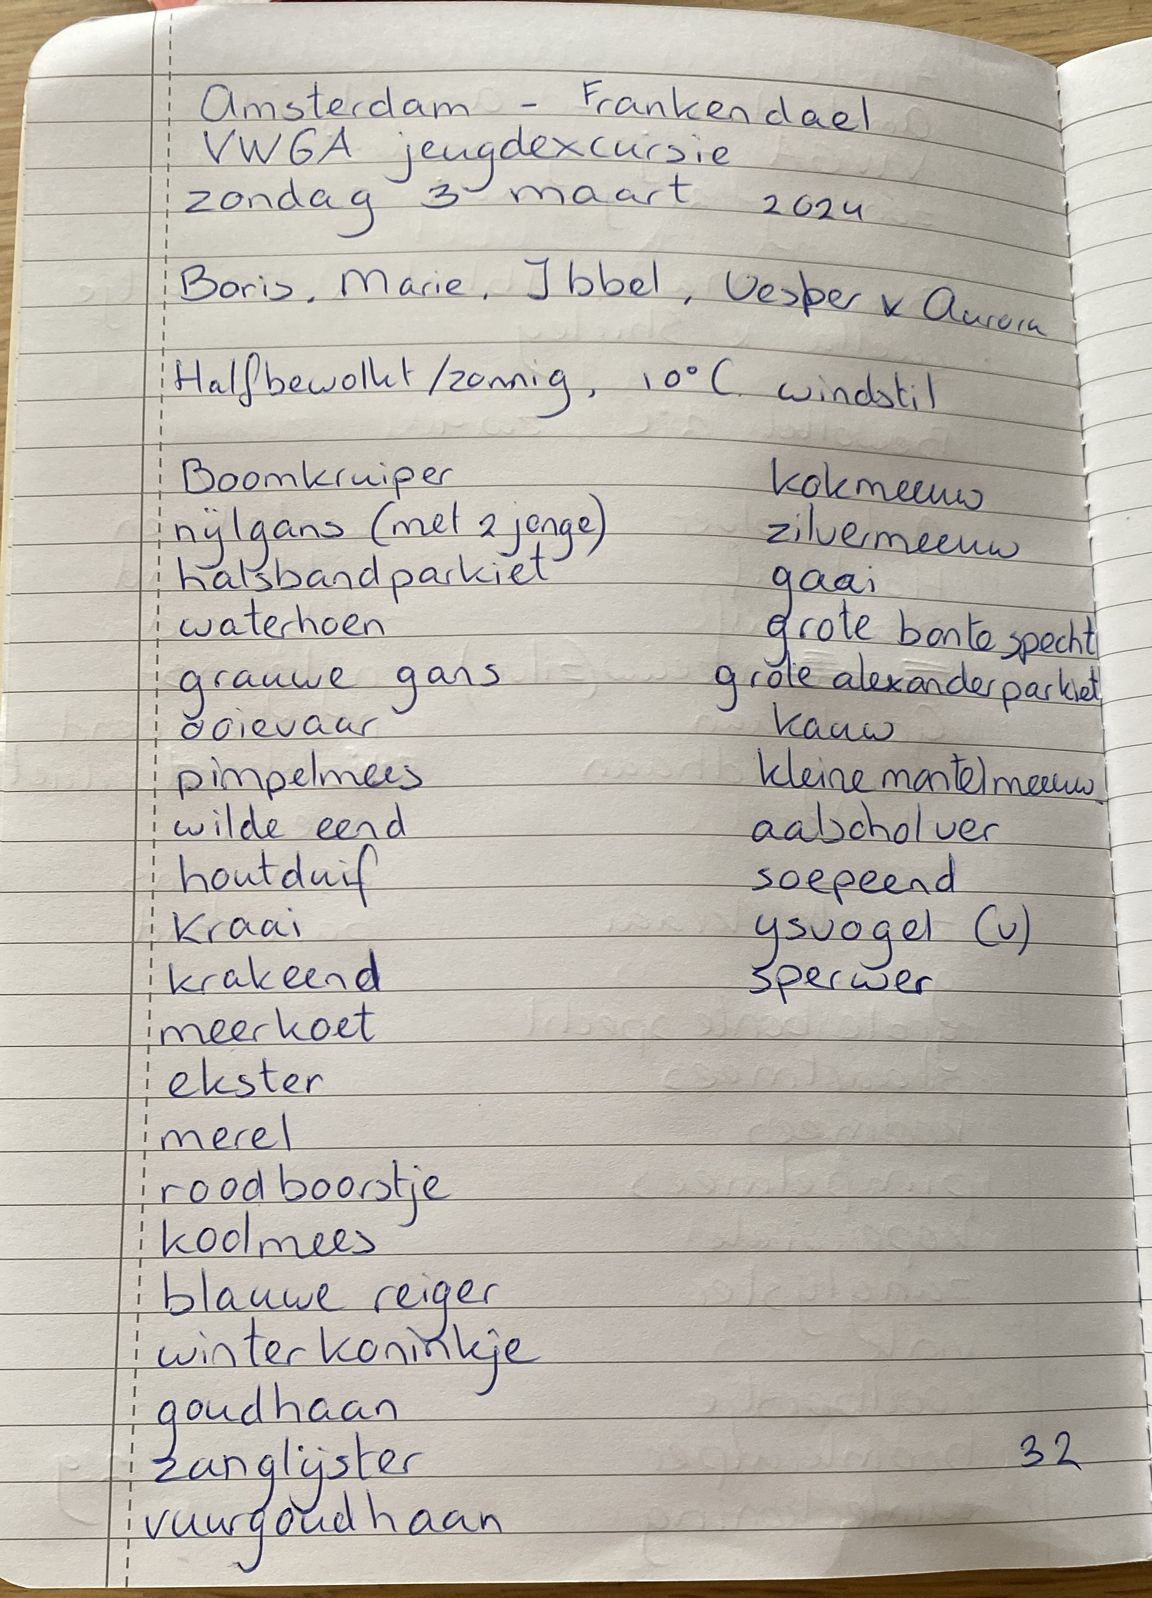 Amsterdam - Frankendael
VWGA jeugdexcursie
zondag 3 maart 2024
Boris, Marie, Ibbel, Vesper & Aurora
Halfbewolkt/zonnig, 10°C. windstil
Boomkruiper
nijlgans (met 2 jonge)
halsbandparkiet
waterhoen
grauwe gans
ooievaar
pimpelmees
wilde eend
houtduif
kraai
krakeend
meerkoet
ekster
merel
roodboorstje
koolmees
blauwe reiger
winterkoninkje
goudhaan
zanglijster
vuurgoudhaan
kokmeeuw
zilvermeeuw
gaai
grote bonte specht
grote alexanderparkiet
kauw
kleine mantelmeeuw
aalscholver
soepeend
ysvogel (v)
sperwer
32